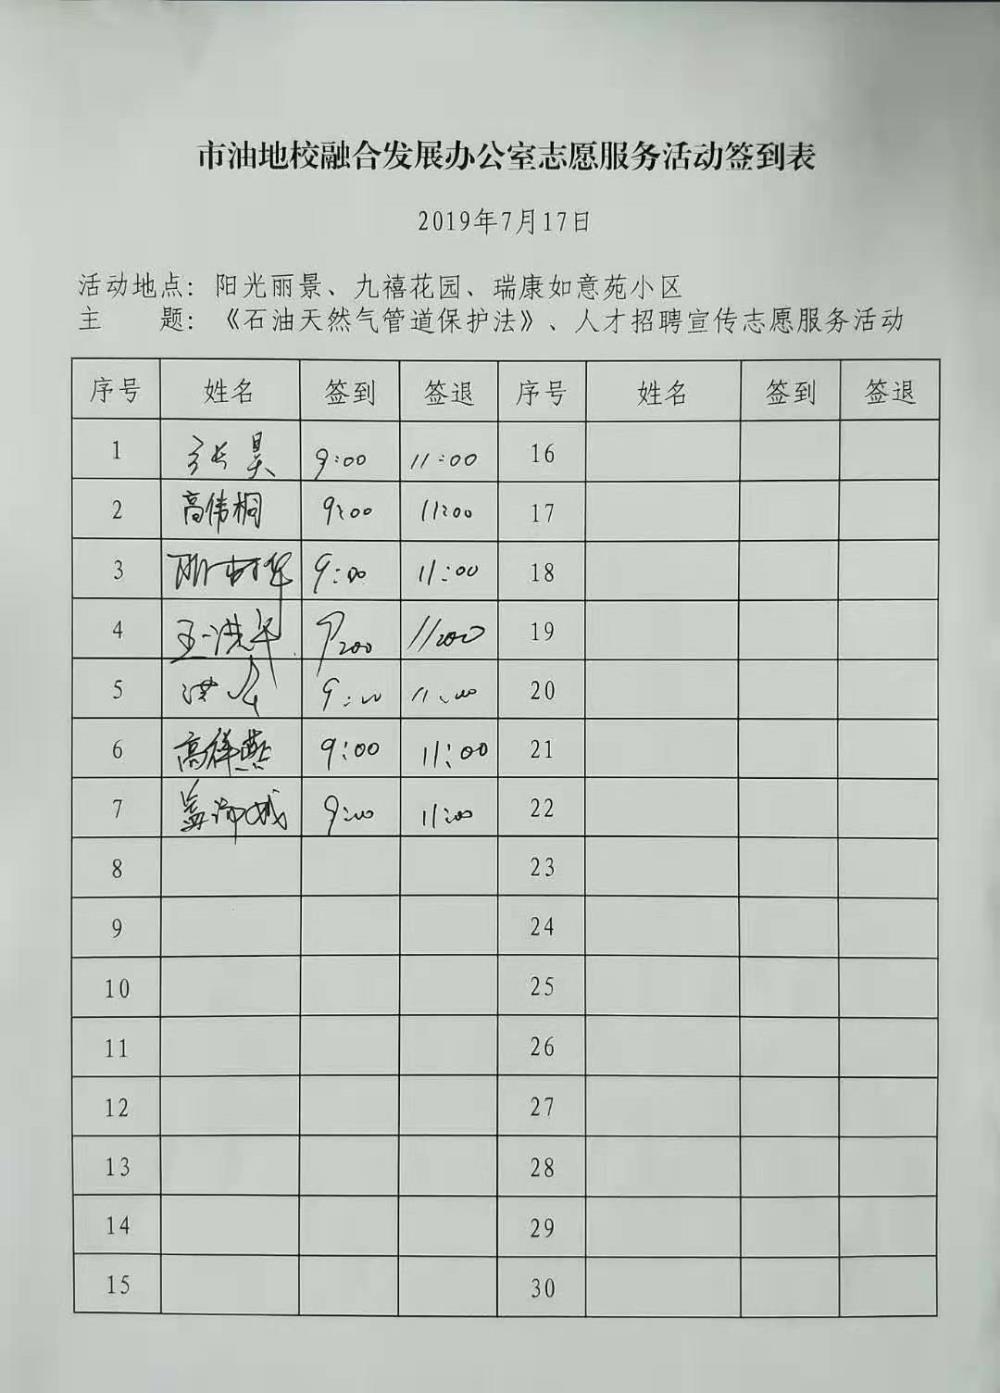 市油地校融合发展办公室志愿服务活动签到表
2019年7月17日
活动地点：阳光丽景、九禧花园、瑞康如意苑小区
主　　题：《石油天然气管道保护法》、人才招聘宣传志愿服务活动
序号 姓名 签到 签退 序号 姓名 签到 签退
1 张昊 9:00 11:00 16
2 高伟桐 9:00 11:00 17
3 9:00 11:00 18
4 王洪军 9:00 11:00 19
5 9:00 11:00 20
6 高祥燕 9:00 11:00 21
7 9:00 11:00 22
8 23
9 24
10 25
11 26
12 27
13 28
14 29
15 30